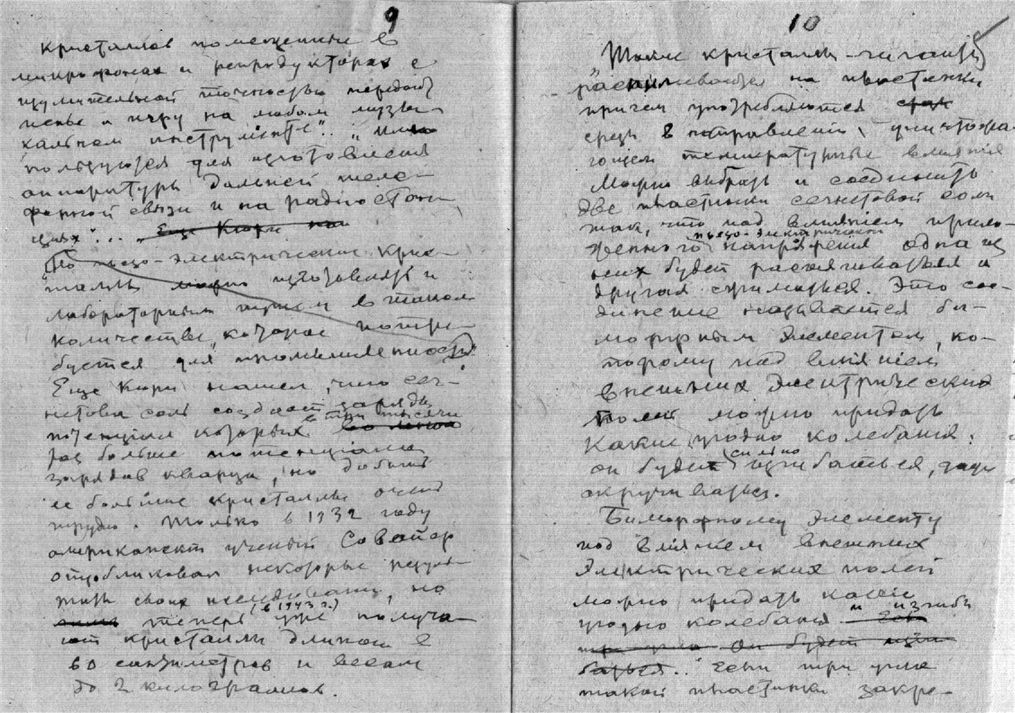 9
кристаллов помещенные в
микрофонах и репродукторах с
изумительной точностью передают
пенье и игру на любом музы-
кальном инструменте".. "Ими
пользуются для изготовления
аппаратуры дальней теле-
фонной связи и на радиостан-
циях"... Еще Кюри на
Но пьезо-электрические крис-
таллы можно изготовлять и
лабораторным путем в таком
количестве, которое потре-
буется для промышленности
Еще Кюри нашел, что сег-
нетова соль создает заряды
потенциал которых в три тысячи
раз больше потенциала
зарядов кварца, но добыть
ее большие кристаллы очень
трудно. Только в 1932 году
американский ученый Сойер
опубликовал некоторые резуль-
таты своих исследований, но
теперь (в 1943 г.) уже получа-
ют кристаллы длиною в
60 сантиметров и весом
до 2 килограммов.
10
Такие кристаллы-гиганты
распиливаются на пластинки
причем употребляются
срезы в направлении, уничтожа-
ющем температурные влияния
Можно выбрать и соединить
две пластинки сегнетовой соли
так, что под влиянием прило-
женного пьезо-электрического напряжения одна из
них будет растягиваться а
другая сжиматься. Это сое-
динение называется би-
морфным элементом, ко-
торому под влиянием
внешних электрических
полей можно придать
какие угодно колебания:
он будет сильно изгибаться,
скручиваться.
Биморфному элементу
под влиянием внешних
электрических полей
можно придать какие
угодно колебания " изгибы
Он будет изги
баться.. Если три угла
такой пластинки закре-